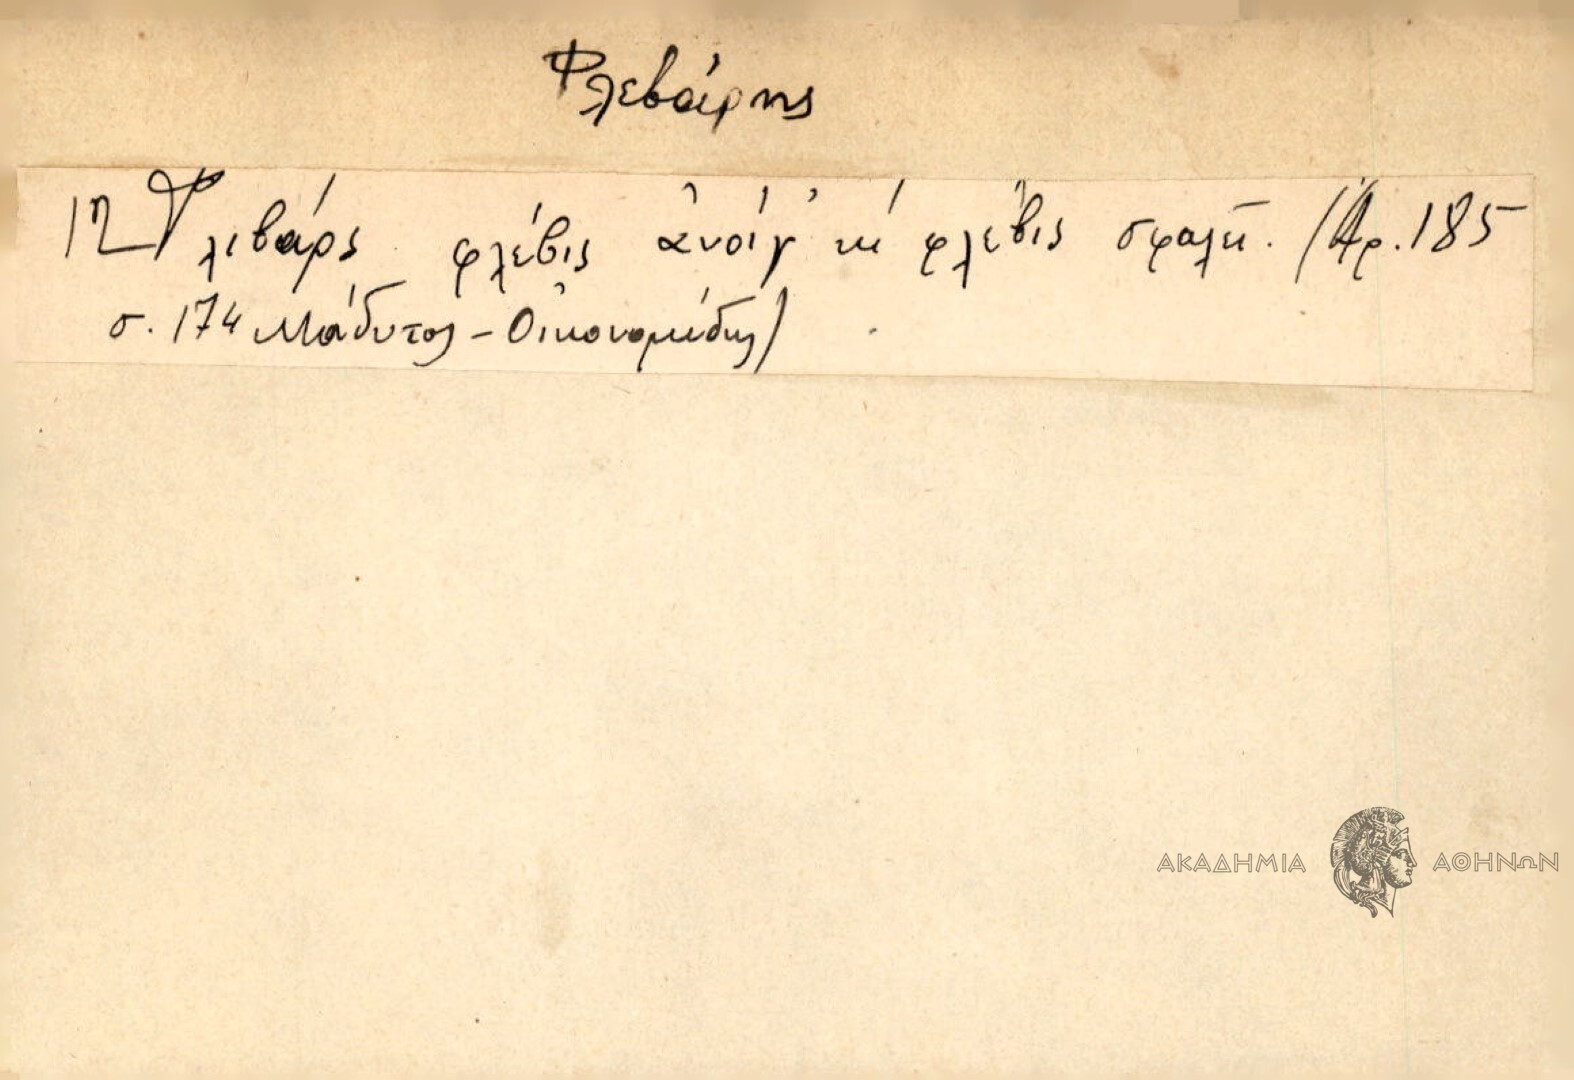 Φλεβάρης
Φλιβάρς φλέβις ἀνοίγ' κί φλέβις σφαλεῖ. (Ἀρ. 185
σ. 174 Μάδυτος - Οἰκονομίδης)
ΑΚΑΔΗΜΙΑ ΑΘΗΝΩΝ